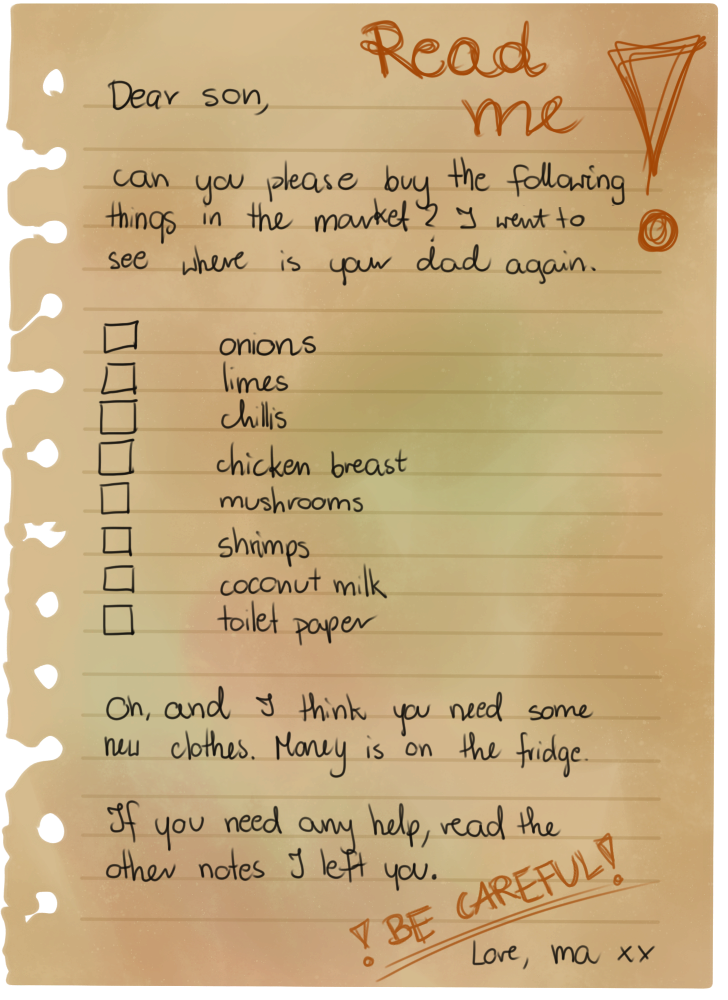 Read
me
Dear son,
can you please buy the following
things in the market? I went to
see where is your dad again.
onions
limes
chillis
chicken breast
mushrooms
shrimps
coconut milk
toilet paper
Oh, and I think you need some
new clothes. Money is on the fridge.
If you need any help, read the
other notes I left you.
! BE CAREFUL!
Love, ma xx